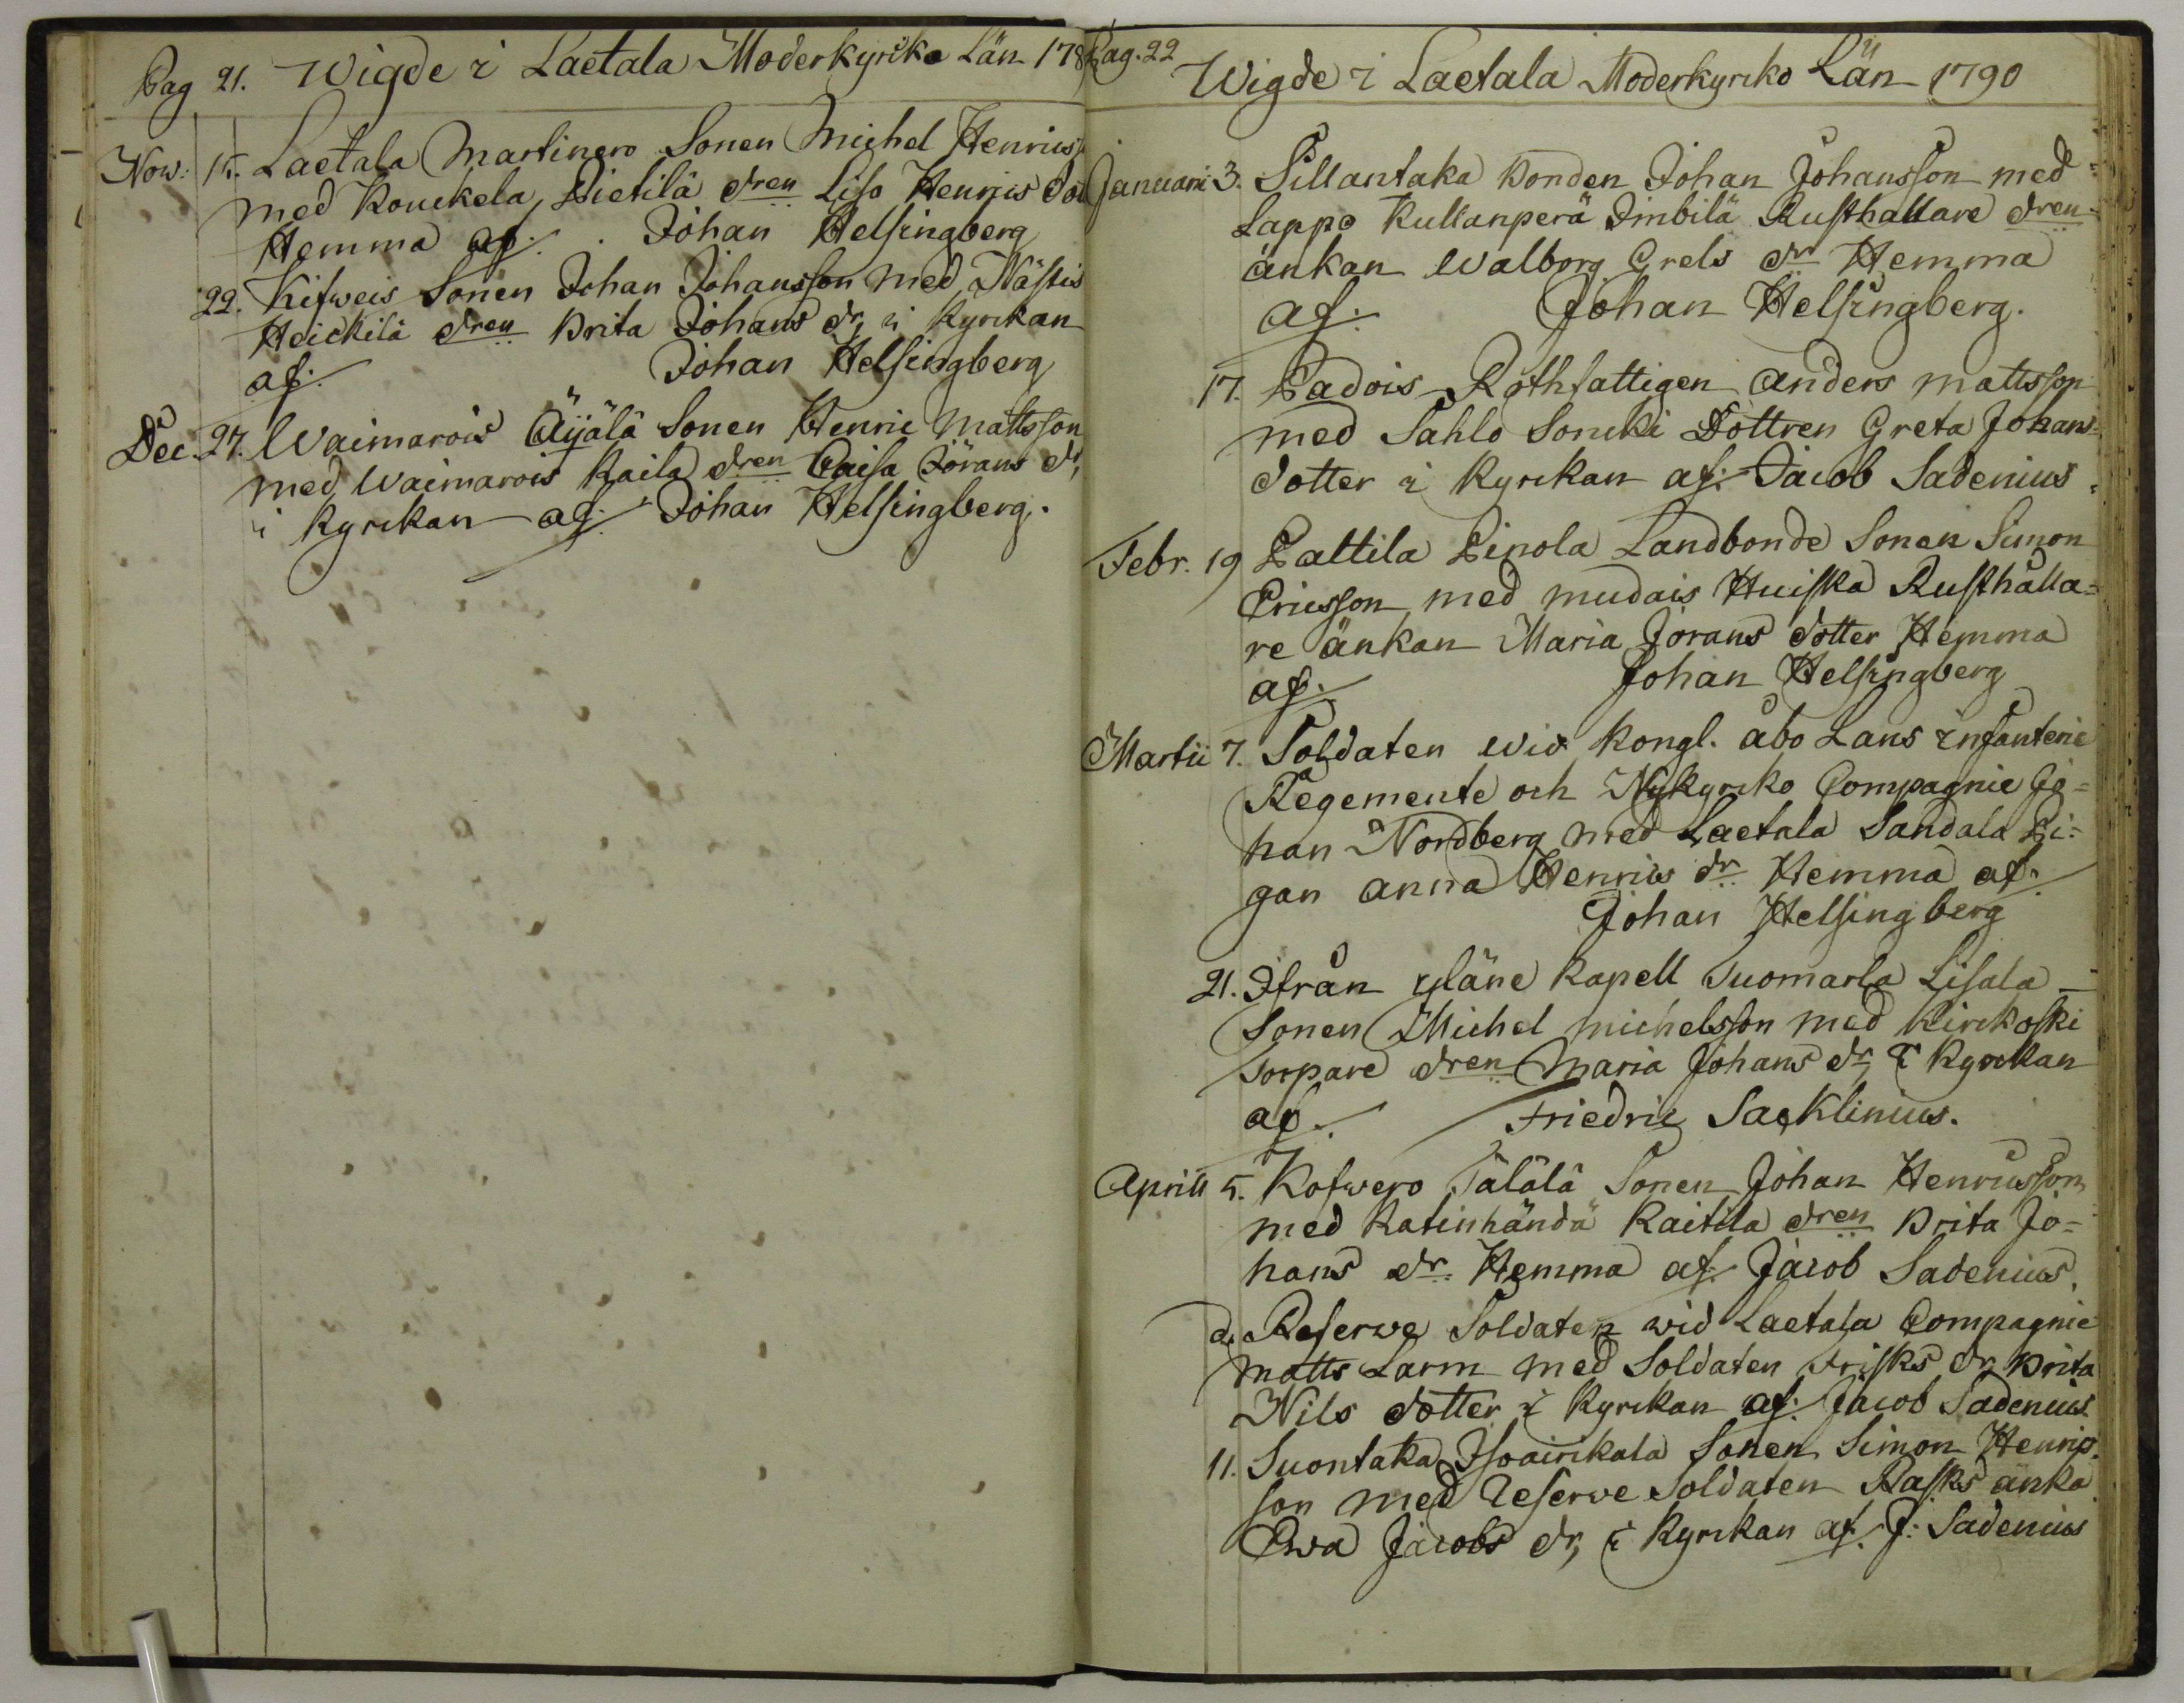 Pag 21. Wigde i Laetala Moderkyrko Län 178
Now: 15. Laetala Martinero Sonen Michel Henrics
med Kouckela Pietilä dren Lisa Henrics do
Hemma af. Johan Helsingberg
22. Kifweis Sonen Johan Johansson med Nästis
Heickilä dren Brita Johans dr, i Kyrckan
af. Johan Helsingberg
Dec. 27. Waimarois Äijälä Sonen Henric Mattsson
med Waimarois Kaila dren Caisa Jörans dr,
i Kyrckan af. Johan Helsingberg.
Pag. 22
Wigde i Laetala Moderkyrko Län 1790
Januari 3. Sillantaka Bonden Johan Johansson med
Lappo Kullanperä Simbilä Rusthållare dren
änkan Walborg Grels dr Hemma
af. Johan Helsingberg.
17. Padois Rothfattigen Anders Mattsson
med Sahlo Soncki Dottren Greta Johans
dotter i Kyrckan af. Jacob Sadenius.
Febr. 19 Pattila Pinola Landbonde Sonen Simon
Ericsson med Mudais Huiska Rusthålla=
re änkan Maria Jörans dotter Hemma
af. Johan Helsingberg
Martii 7. Soldaten wid Kongl. Åbo Läns infanterie
Regemente och Nykyrcko Compagnie Jo=
han Nordberg med Laetala Sandala Pi=
gan Anna Henrics dr Hemma af.
Johan Helsingberg
21. Ifrån Yläne Kapell Suomarla Lisala
Sonen Michel Michelsson med Kirckoski
Torpare dren Maria Johans dr, i Kyrckan
af. Friedric Sacklinius.
Aprill 5. Kofwero Tälälä Sonen Johan Henricsson
med Katinhändä Kaitila dren Brita Jo=
hans dr. Hemma af. Jacob Sadenius.
d. Reserwe Soldaten wid Laetala Compagnie
Matts Larm med Soldaten Frisks dr Brita
Nils dotter i Kyrckan af. Jacob Sadenius
11. Suontaka Isoairikala Sonen Simon Henrics
son med Reserve Soldaten Rasks änka
Ewa Jacobs dr, i Kyrckan af. J. Sadenius